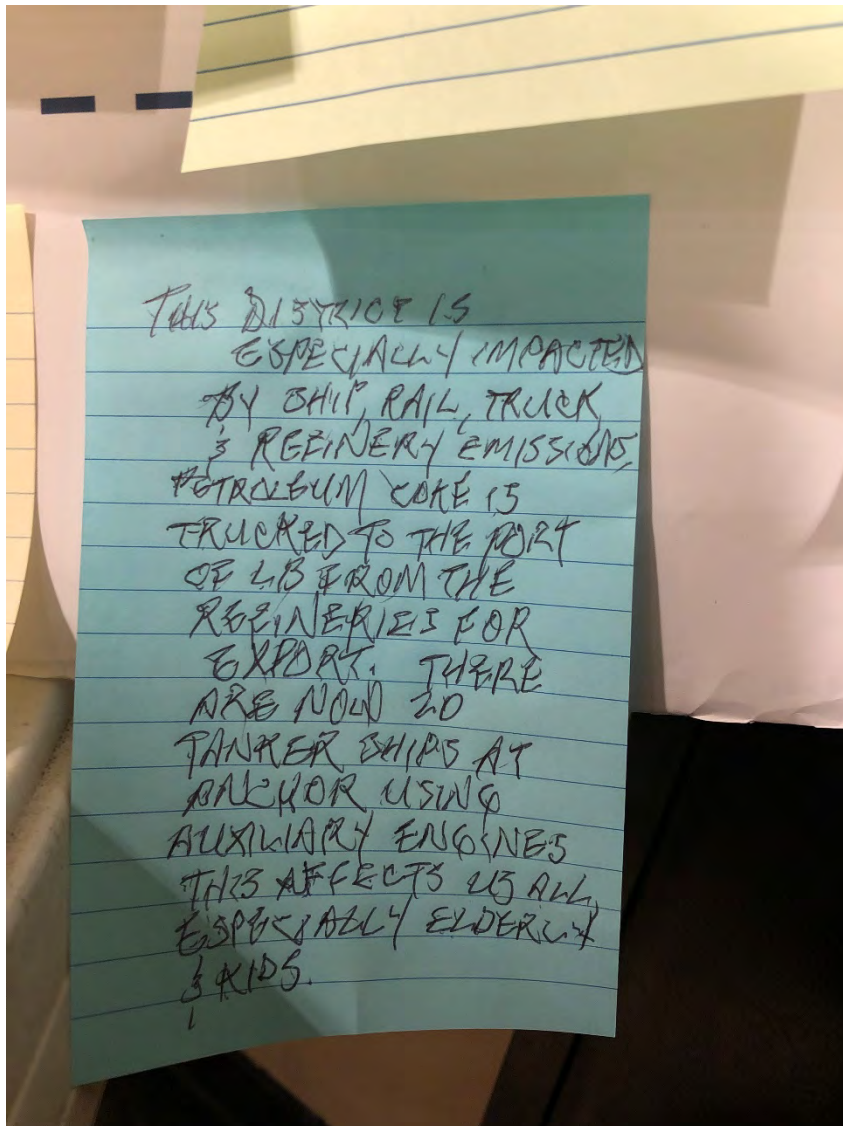 THIS DISTRICT IS
ESPECIALLY IMPACTED
BY SHIP, RAIL, TRUCK,
& REFINERY EMISSIONS.
PETROLEUM COKE IS
TRUCKED TO THE PORT
OF LB FROM THE
REFINERIES FOR
EXPORT. THERE
ARE NOW 20
TANKER SHIPS AT
ANCHOR USING
AUXILIARY ENGINES
THIS AFFECTS US ALL,
ESPECIALLY ELDERLY
& KIDS.